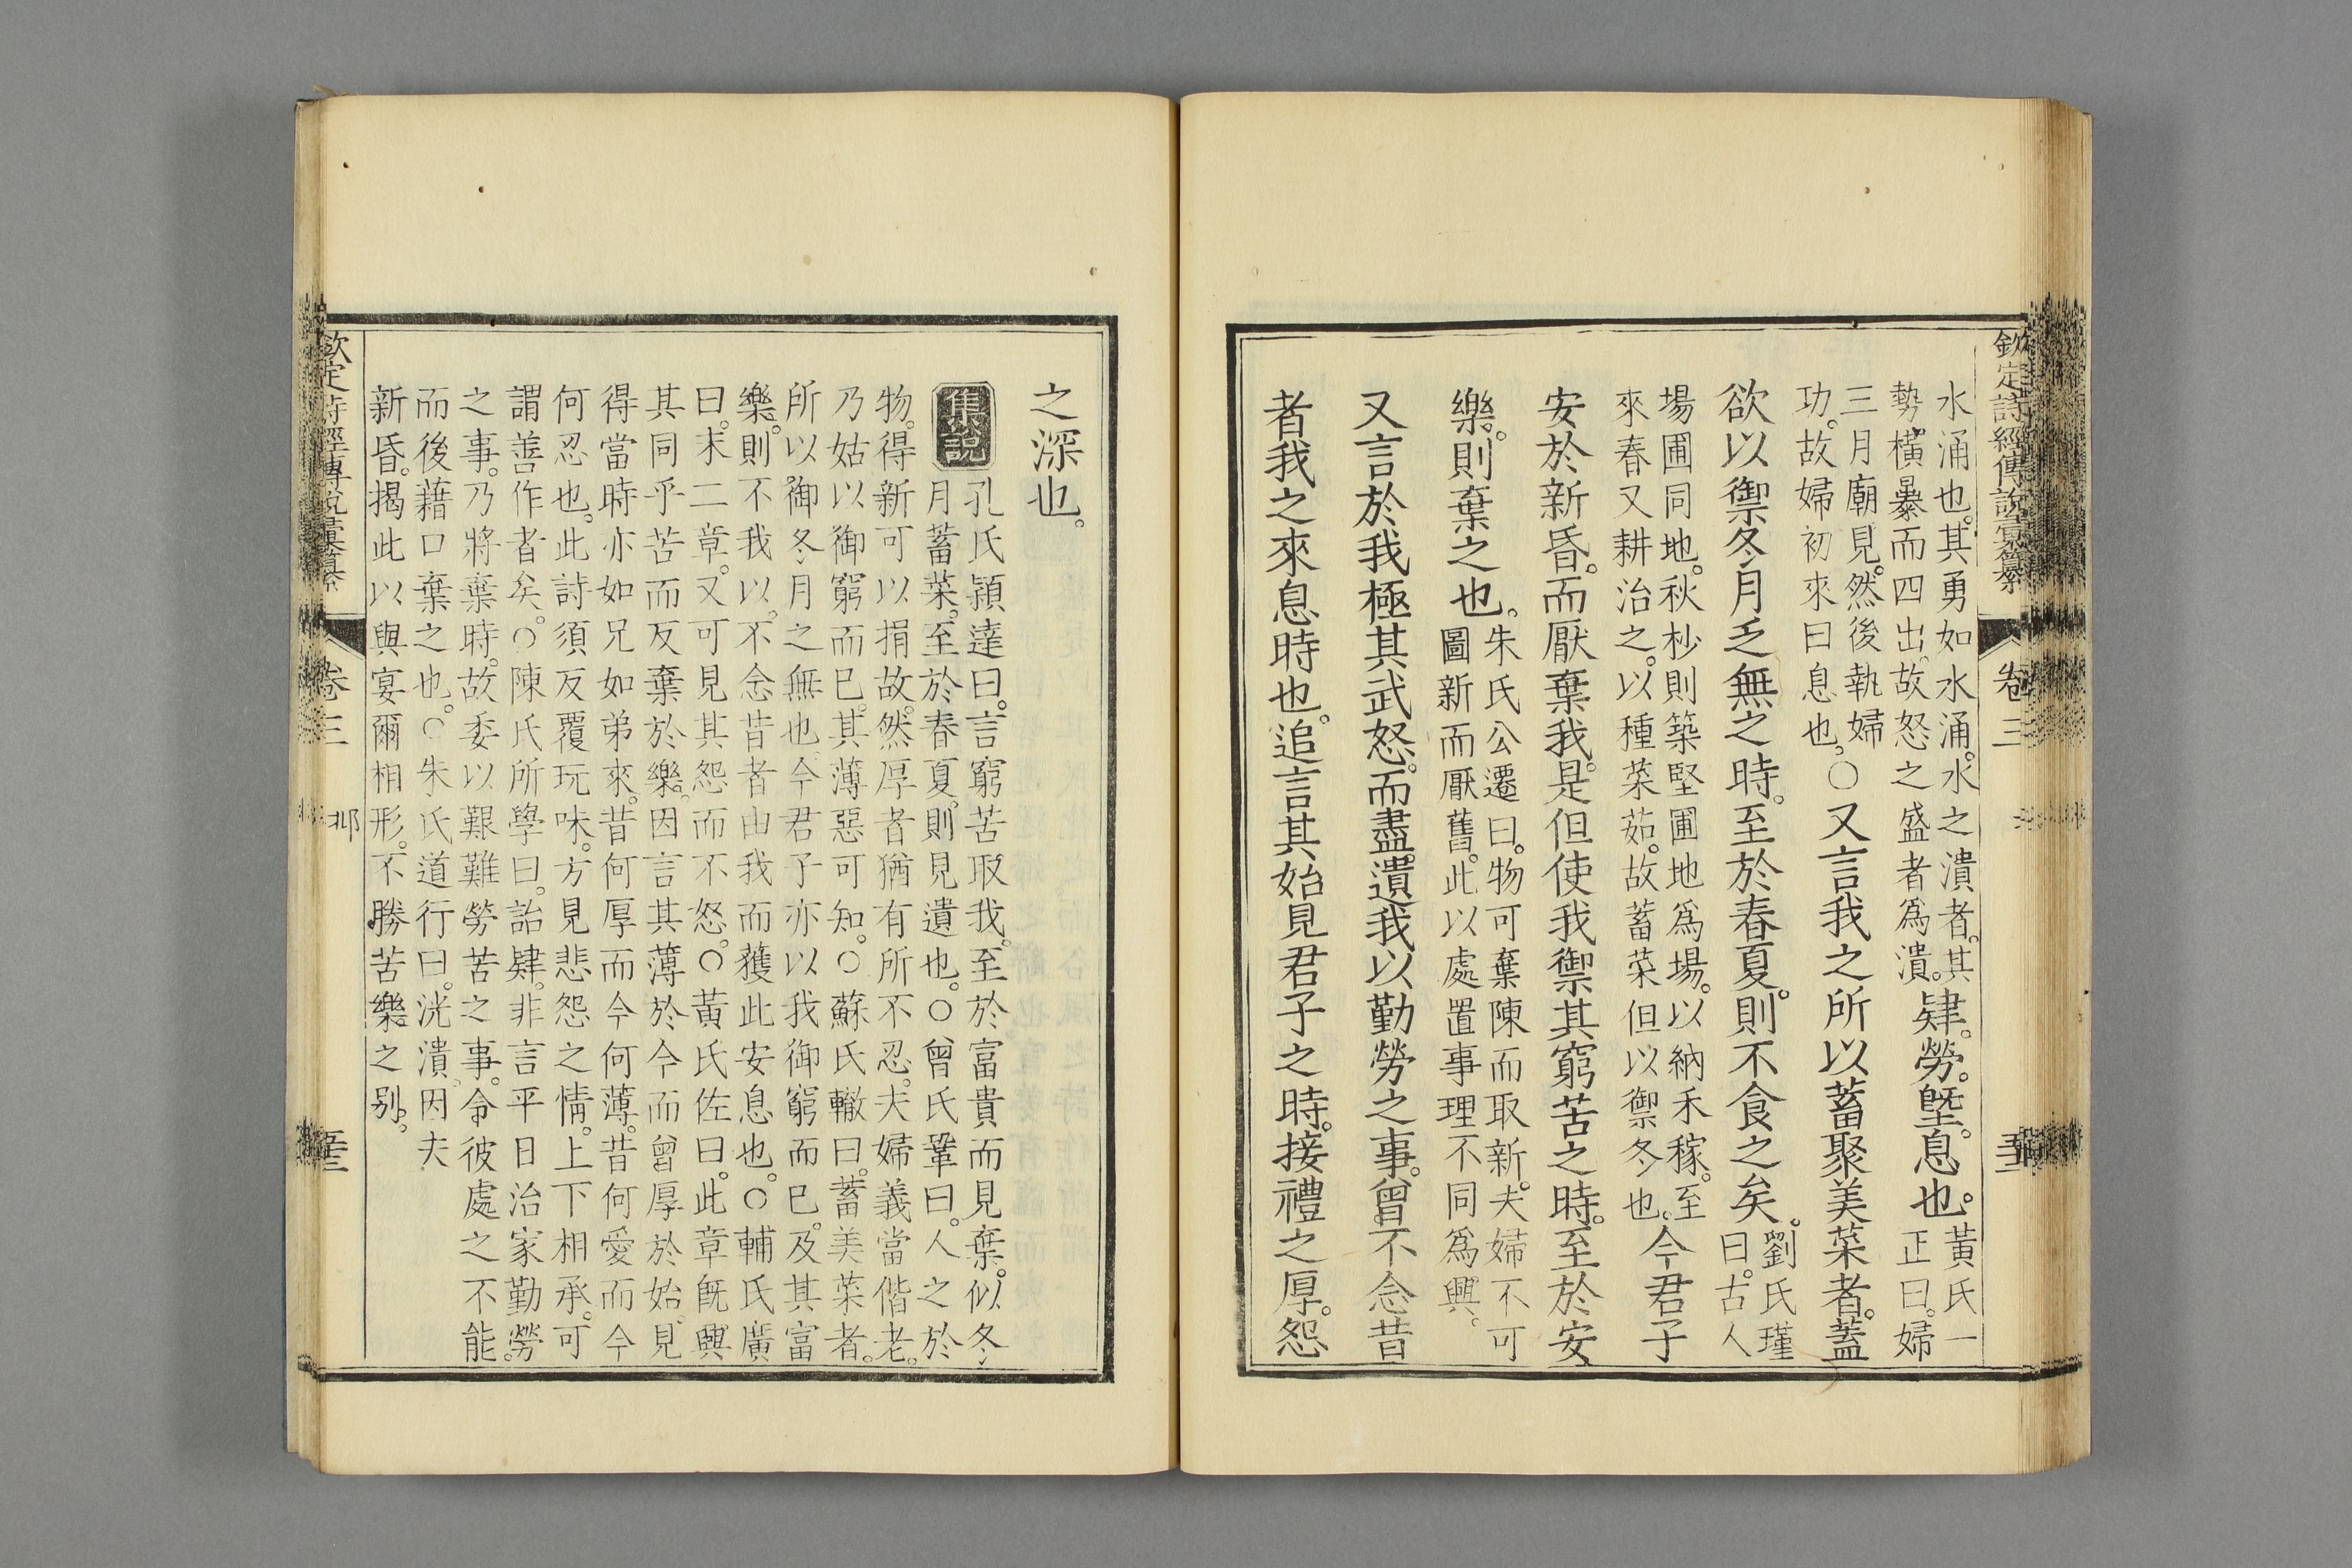 欽定詩經傳說彙纂
卷三
水涌也。其勇如水涌。水之潰者。其
勢橫暴而四出。故怒之盛者爲潰。
肄。勞。塈。息也。
黃氏一
正曰。婦
三月廟見。然後執婦
功。故婦初來曰息也。
○又言我之所以蓄聚美菜者。蓋
欲以禦冬月乏無之時。至於春夏。則不食之矣。
劉氏瑾
曰。古人
場圃同地。秋杪則築堅圃地爲場。以納禾稼。至
來春又耕治之。以種菜茹。故蓄菜但以禦冬也。
今君子
安於新昏。而厭棄我。是但使我禦其窮苦之時。至於安
樂。則棄之也。
朱氏公遷曰。物可棄陳而取新。夫婦不可
圖新而厭舊。此以處置事理不同爲興。
又言於我極其武怒。而盡遺我以勤勞之事。曾不念昔
者我之來息時也。追言其始見君子之時。接禮之厚。怨
之深也。
集說
孔氏穎達曰。言窮苦取我。至於富貴而見棄。似冬
月蓄菜。至於春夏。則見遺也。○曾氏鞏曰。人之於
物。得新可以捐故。然厚者猶有所不忍。夫婦義當偕老。
乃姑以御窮而已。其薄惡可知。○蘇氏轍曰。蓄美菜者。
所以御冬月之無也。今君子亦以我御窮而已。及其富
樂。則不我以。不念昔者由我而獲此安息也。○輔氏廣
曰。末二章。又可見其怨而不怒。○黃氏佐曰。此章旣興
其同乎苦而反棄於樂。因言其薄於今而曾厚於始。見
得當時亦如兄如弟來。昔何厚而今何薄。昔何愛而今
何忍也。此詩須反覆玩味。方見悲怨之情。上下相承。可
謂善作者矣。○陳氏所學曰。詒肄。非言平日治家勤勞
之事。乃將棄時。故委以艱難勞苦之事。令彼處之不能。
而後藉口棄之也。○朱氏道行曰。洸潰。因夫
新昏。揭此以與宴爾相形。不勝苦樂之别。
欽定詩經傳說彙纂
卷三
邶